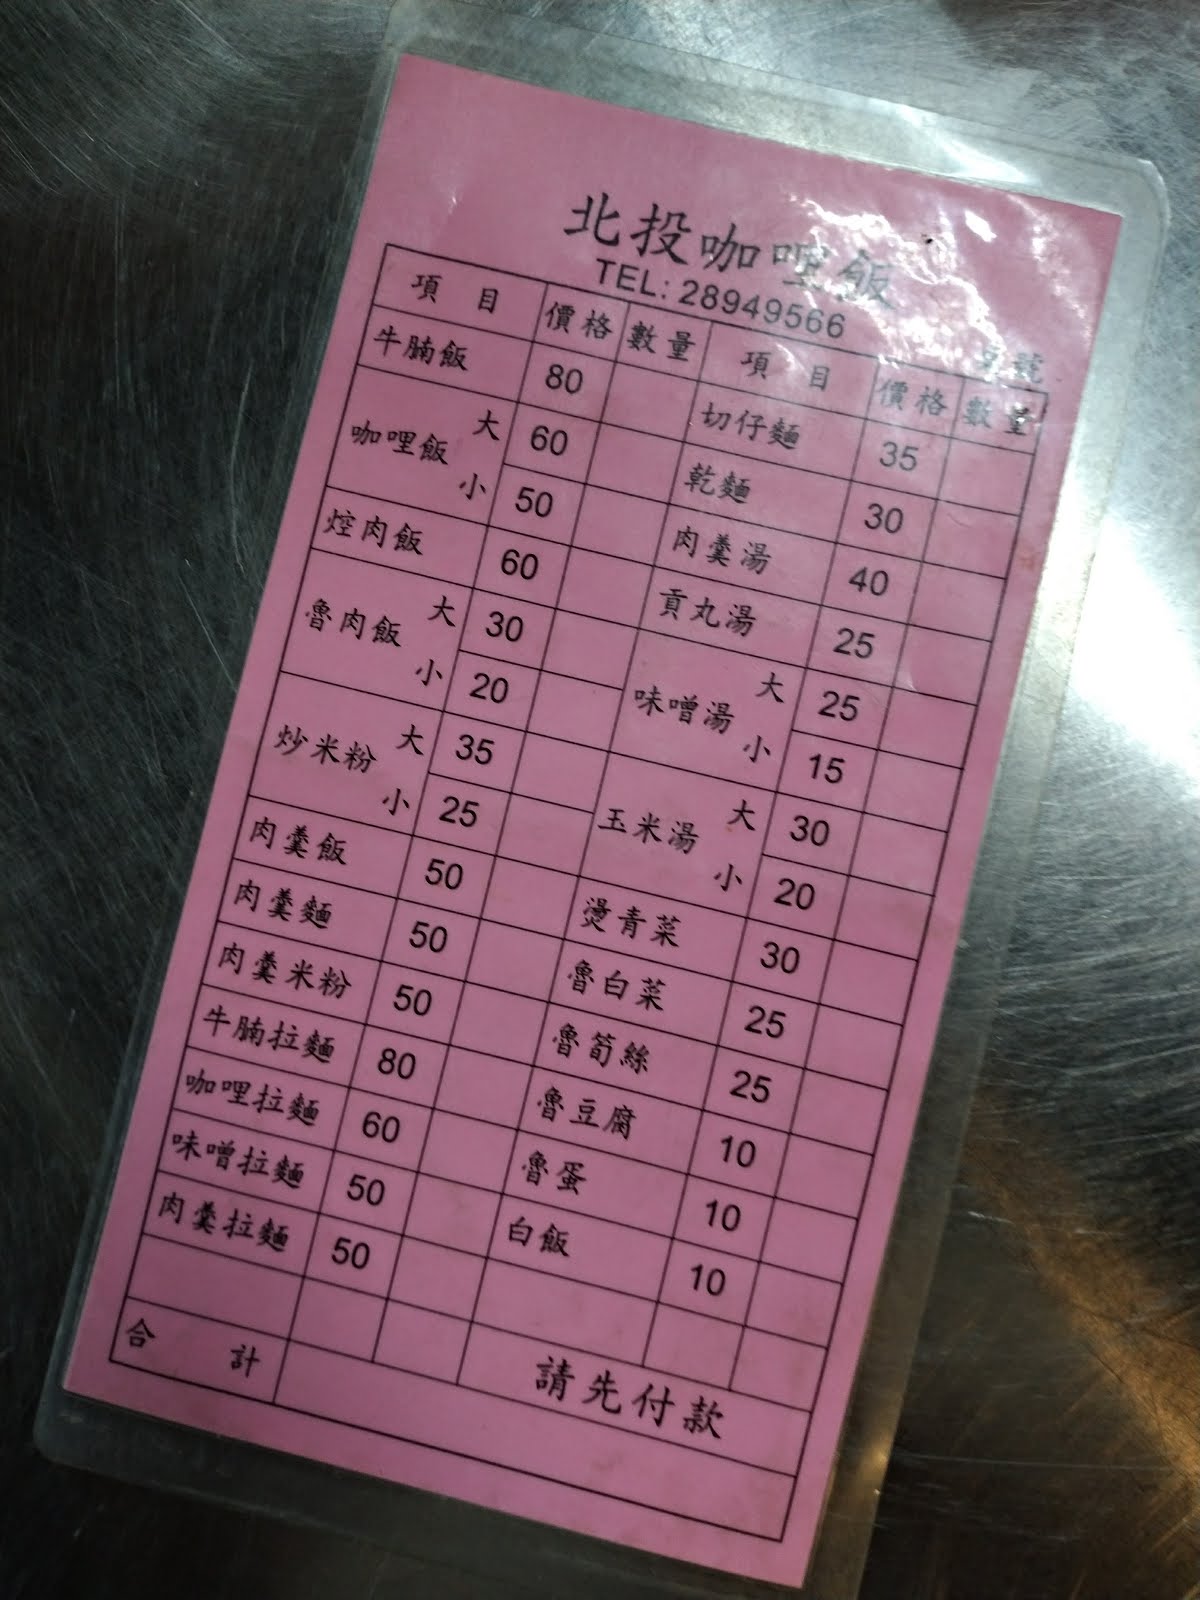 北投咖哩飯
TEL: 28949566
號
項 目 價格 數量 項 目 價格 數量
牛腩飯 80 切仔麵 35
咖哩飯 大 60 乾麵 30
小 50 肉羹湯 40
焢肉飯 60 貢丸湯 25
魯肉飯 大 30 味噌湯 大 25
小 20 小 15
炒米粉 大 35 玉米湯 大 30
小 25 小 20
肉羹飯 50 燙青菜 30
肉羹麵 50 魯白菜 25
肉羹米粉 50 魯筍絲 25
牛腩拉麵 80 魯豆腐 10
咖哩拉麵 60 魯蛋 10
味噌拉麵 50 白飯 10
肉羹拉麵 50
合 計 請先付款